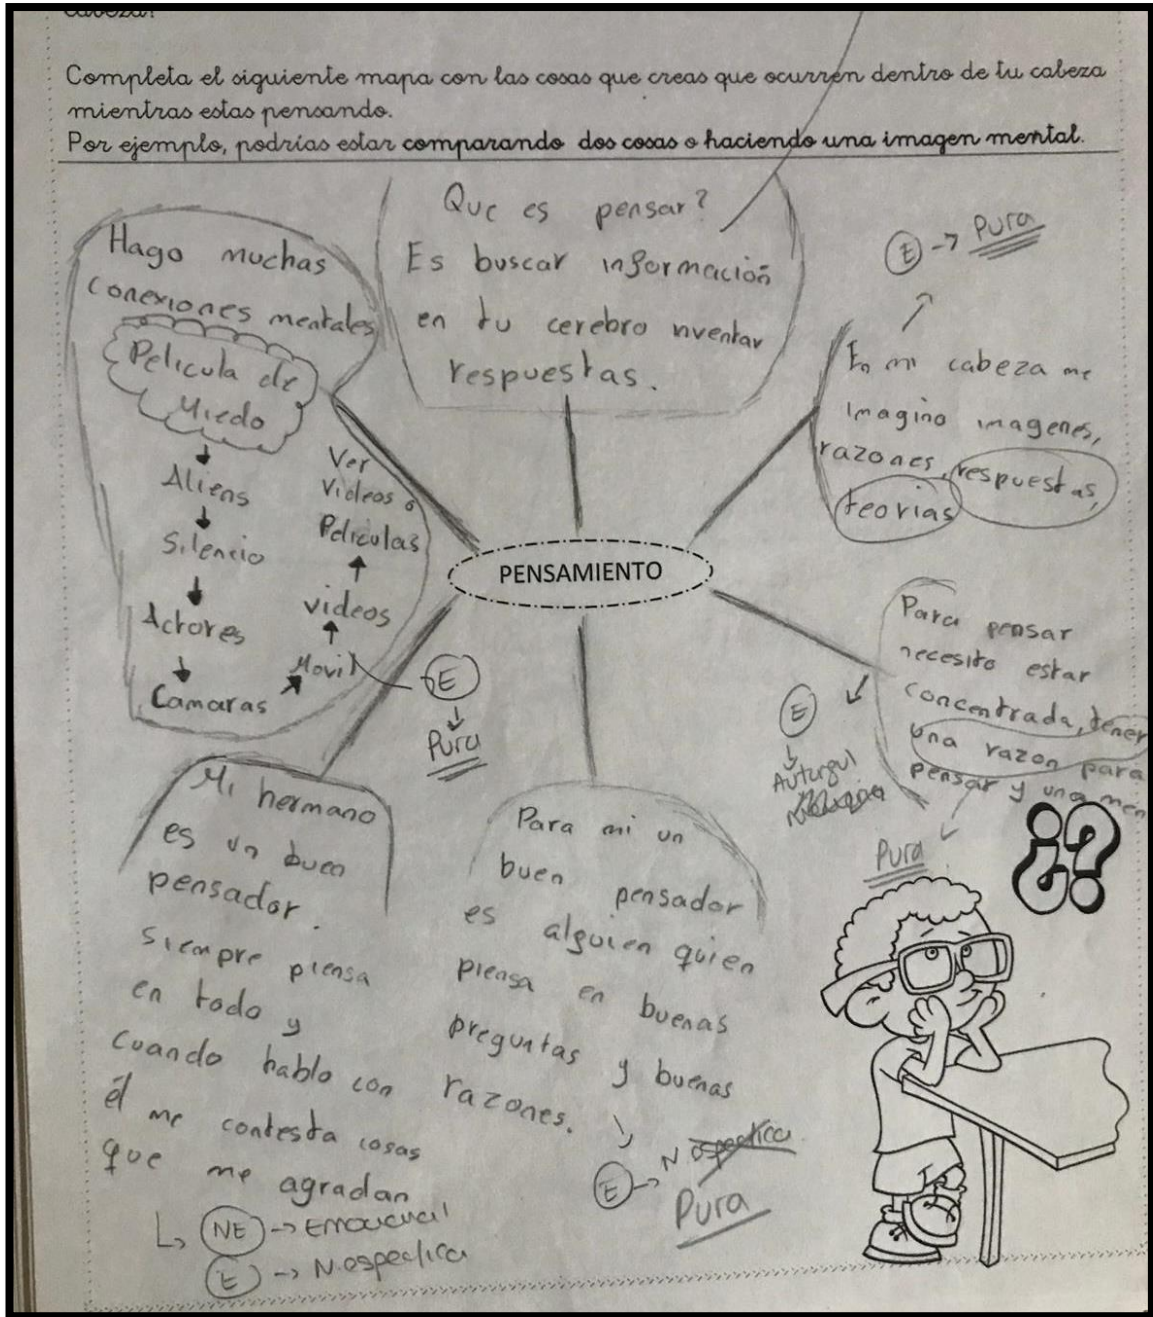 cabeza?
Completa el siguiente mapa con las cosas que creas que ocurren dentro de tu cabeza
mientras estas pensando.
Por ejemplo, podrías estar comparando dos cosas o haciendo una imagen mental.
Que es pensar?
Es buscar información
en tu cerebro nventar
respuestas.
Hago muchas
conexiones mentales
Pelicula de
Miedo
Aliens
Silencio
Actores
Camaras
Movil
videos
Ver
videos o
Peliculas
E
Pura
E → Pura
En mi cabeza me
imagino imagenes,
razones, respuestas,
teorias
PENSAMIENTO
Para pensar
necesito estar
concentrada, tener
una razon para
pensar y una men
E
Pura
Mi hermano
es un buen
pensador.
Siempre piensa
en todo y
cuando hablo con
él me contesta cosas
que me agradan
NE → Emocional
E → N.especifica
Para mi un
buen pensador
es alguien quien
piensa en buenas
preguntas y buenas
razones.
E → N.especifica
Pura
¿?